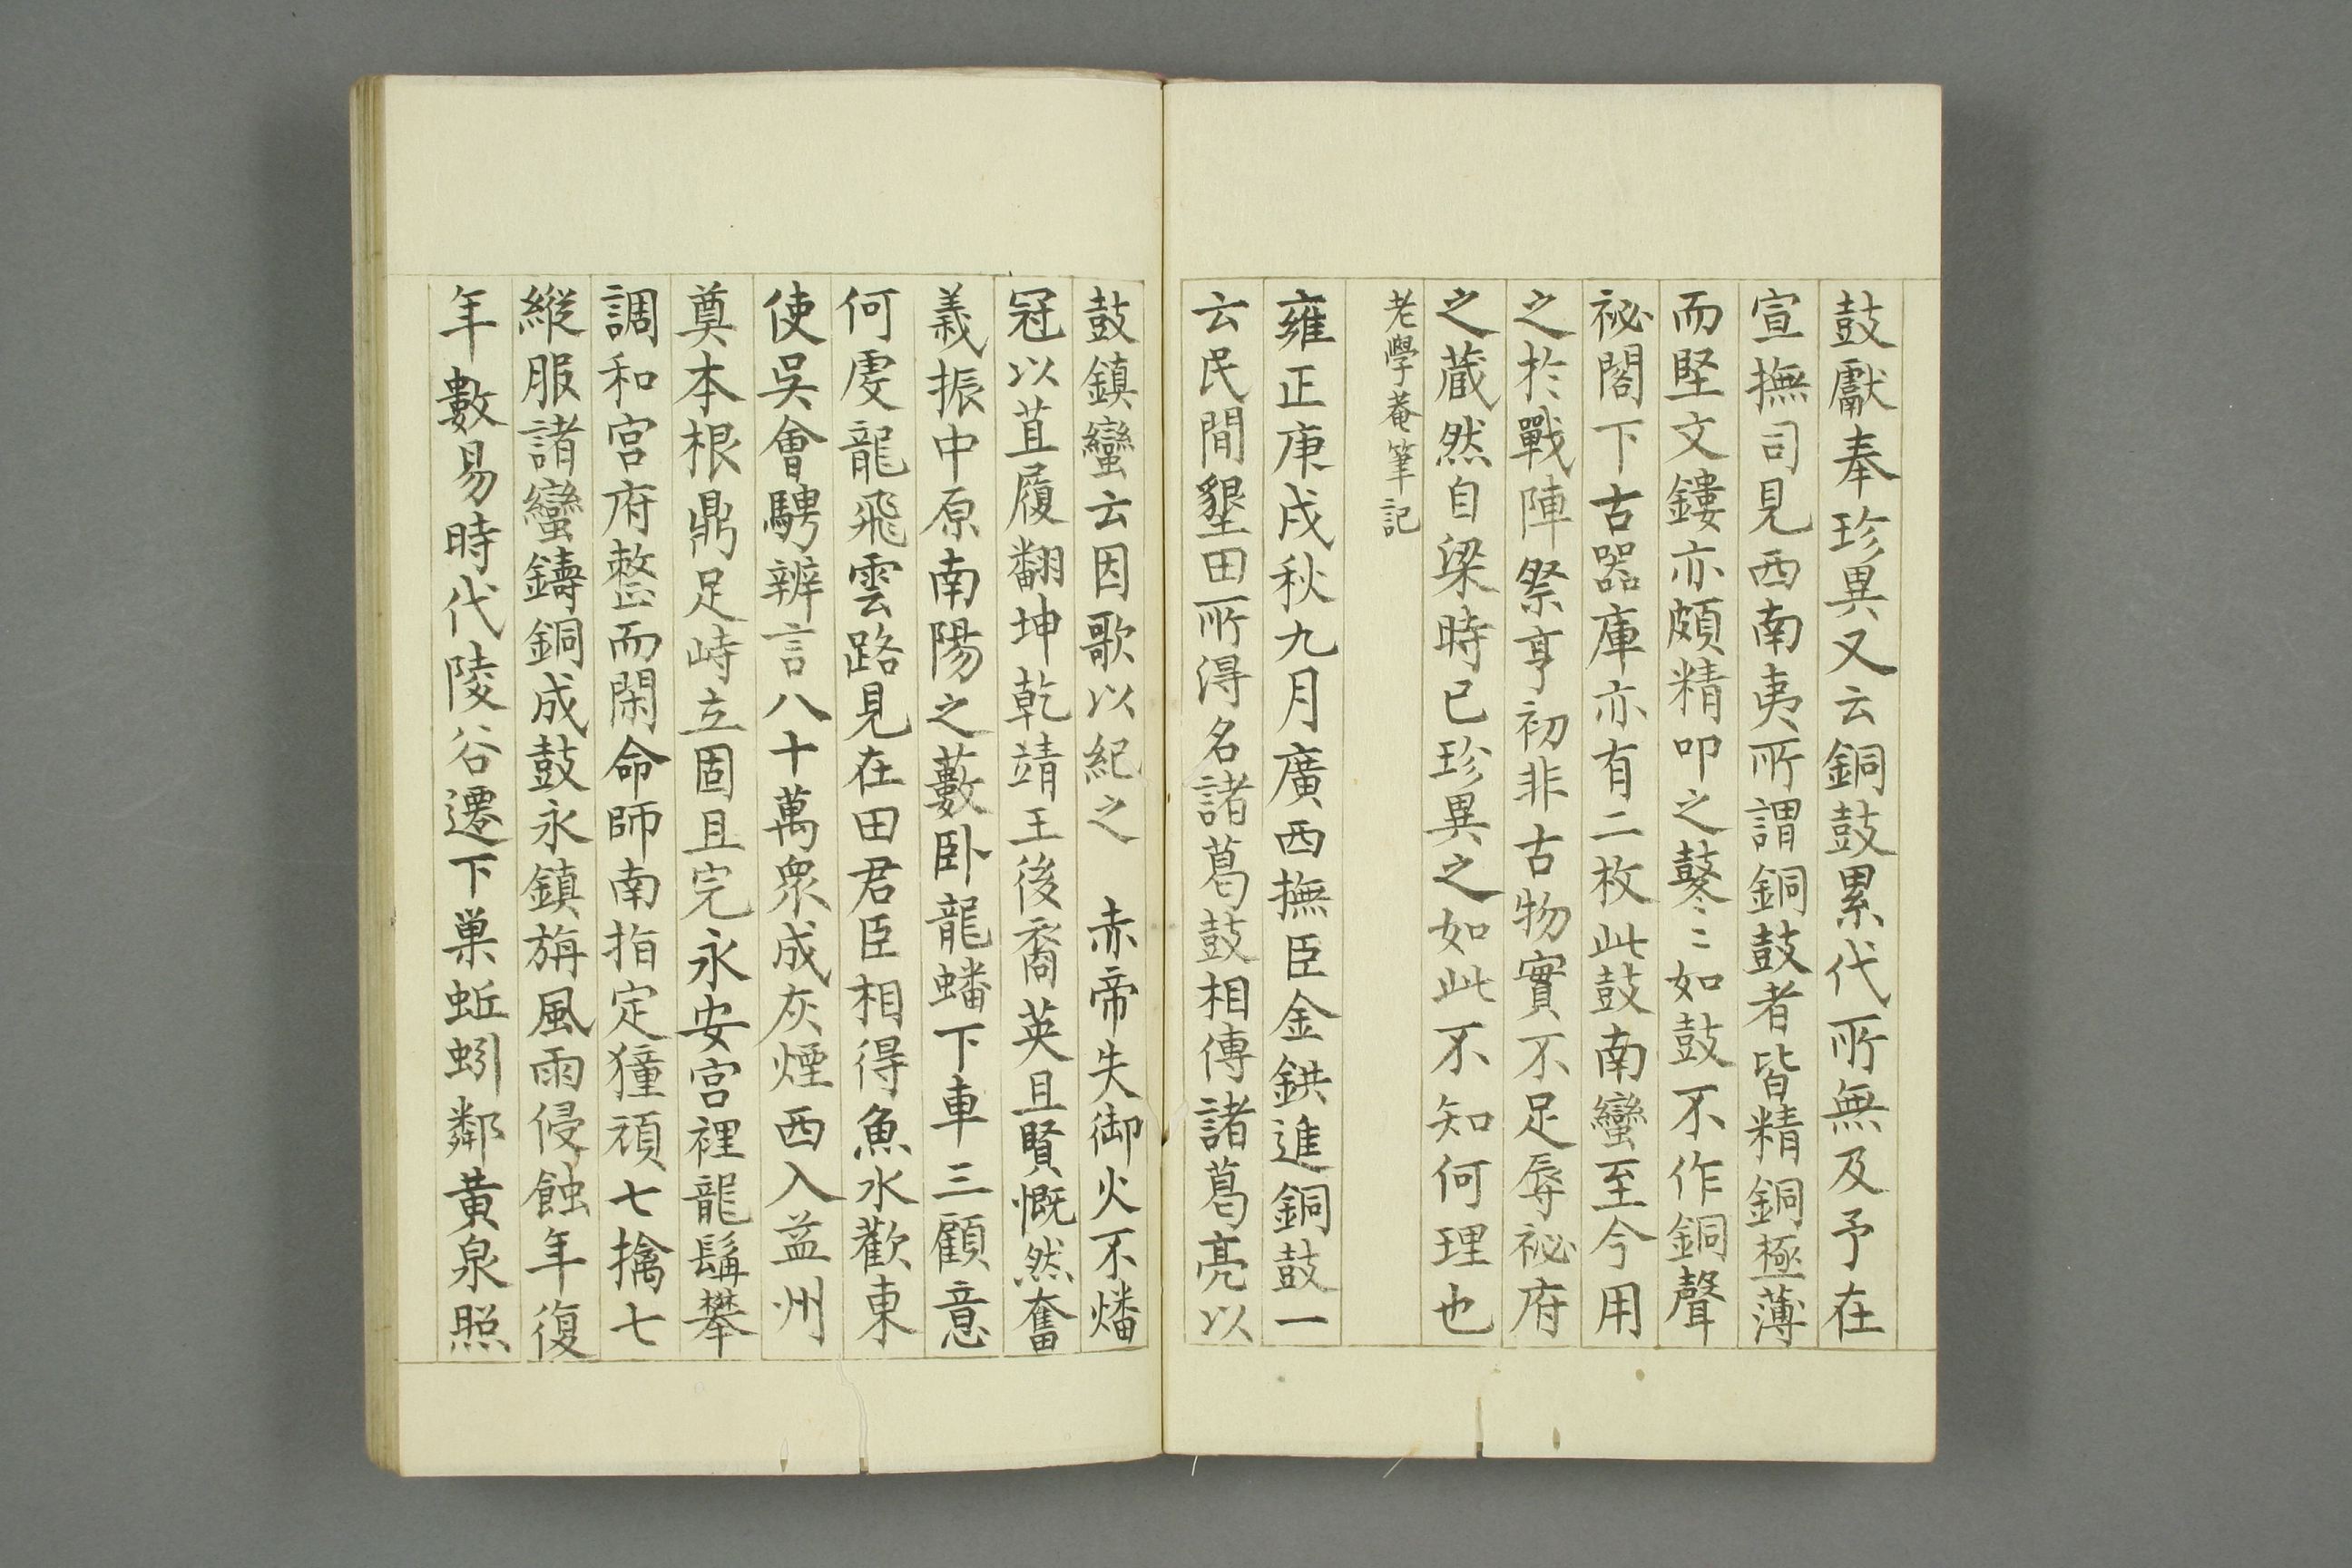 鼓獻奉珍異又云銅鼓累代所無及予在
宣撫司見西南夷所謂銅鼓者皆精銅極薄
而堅文鏤亦頗精叩之鼕〻如鼓不作銅聲
祕閣下古器庫亦有二枚此鼓南蠻至今用
之於戰陣祭享初非古物實不足辱祕府
之蔵然自梁時已珍異之如此不知何理也
老學菴筆記
雍正庚戌秋九月廣西撫臣金鉷進銅鼓一
云民間墾田所得名諸葛鼓相傳諸葛亮以
鼓鎮蠻云因歌以紀之　赤帝失御火不燔
冠以苴履翻坤乾靖王後裔英且賢慨然奮
義振中原南陽之藪卧龍蟠下車三顧意
何虔龍飛雲路見在田君臣相得魚水歡東
使吳會騁辨言八十萬衆成灰煙西入益州
奠本根鼎足峙立固且完永安宮裡龍髯攀
調和宮府整而閑命師南指定獞頑七擒七
縱服諸蠻鑄銅成鼓永鎮旃風雨侵蝕年復
年數易時代陵谷遷下巢蚯蚓鄰黃泉照